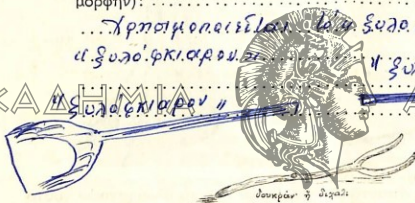 μορφήν):
Χρησιμοποιεῖται τό ξυλο
"ξυλόφκιαρον"
"ξυ
ΚΑΔΗΜΙΑ
"ξυλόφκιαρον"
δουκράν ἤ διχάλι